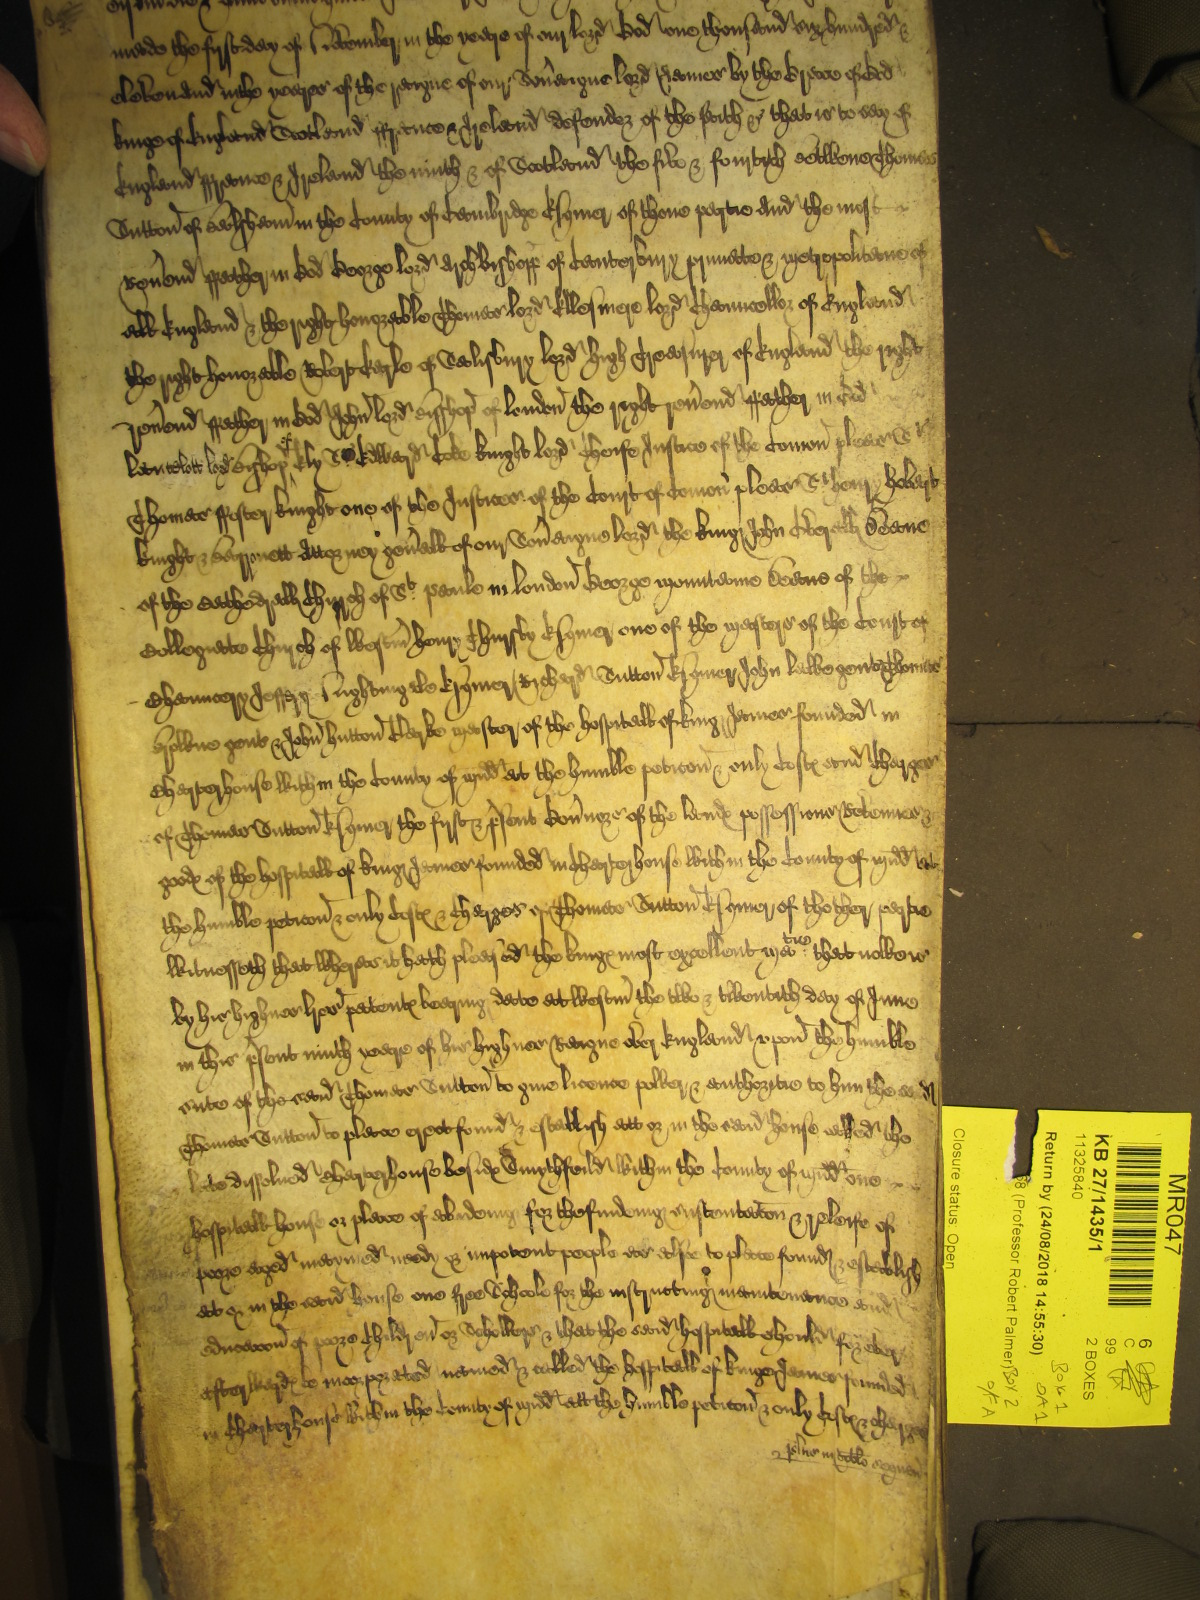 made the first day of November in the yeare of our lord God one thousand six hundred &
eleven and in the yeares of the raigne of our Sov'aigne lord James by the Grace of God
kinge of England Scotland ffrance & Ireland defender of the faith &c that is to say of
England ffrance & Ireland the ninth & of Scotland the five & fourtith Betwene Thomas
Sutton of Balsham in the County of Cambridge Esquier of thone partie And the most
Rev'end ffather in God George lord Archbishopp of Canterbury primate & metropolitane of
all England & the right honorable Thomas lord Ellesmere lord Chauncellor of England
the right honorable Robert Earle of Salisbury lord high Treasurer of England the right
rev'end ffather in God John lord Bishop of london the right rev'end ffather in God
launcelott lord Bishop of Ely Sr Edward Coke knight lord Cheife Justice of the Comon pleas Sr
Thomas ffoster knight one of the Justices of the Court of Comon pleas Sr henry hobart
knight & Barronett Attorney gen'all of our Sov'aigne lord the kinge John Overall Deane
of the Cathedrall Church of St paule in london George mountaine Deane of the
Collegiate Church of Westm' henry Thursby Esquier one of the masters of the Court of
Chauncery Jeffery Nightingale Esquier Richard Sutton Esquier John lawe gent Thomas
Browne gent & John hutton Clarke master of the hospitall of king James founded in
Charterhouse within the County of midd at the humble peticon & only Costs and Charges
of Thomas Sutton Esquier the first & p'sent Gov'nors of the lands possessions Revenues &
goods of the hospitall of kinge James founded in Charterhouse within the County of midd att
the humble peticon & only Costs & Charges of Thomas Sutton Esquier of thother partie
Witnesseth that whereas it hath pleased the kings most excellent matie that nowe is
by his highnes l'res patents bearing date at Westm' the two & twentith day of June
in this p'sent ninth yeare of his highnes Raigne over England vpon the humble
suite of the said Thomas Sutton to give licence power & authoritie to him the said
Thomas Sutton to place erect found & establish att or in the said house called the
late dissolved Charterhouse besids Smythfeild within the County of midd one
hospitall house or place of abideing for the findeing sustentacon & releife of
poore aged maymed needy or impotent people as alsoe to place found & establish
at or in the said house one free Schoole for the instructing maintenance and
educacon of poore Children or Schollers & that the said hospitall should for ever
afterwards be incorporated named & called the hospitall of kinge James founded
in Charterhouse within the County of midd att the humble peticon & only Costs & Charges
MR047
KB 27/1435/1
11325840
Return by (24/08/2018 14:55:30)
(Professor Robert Palmer)
Closure status: Open
6
C
99
2 BOXES
Box 1
O/A 1
Box 2
O/A